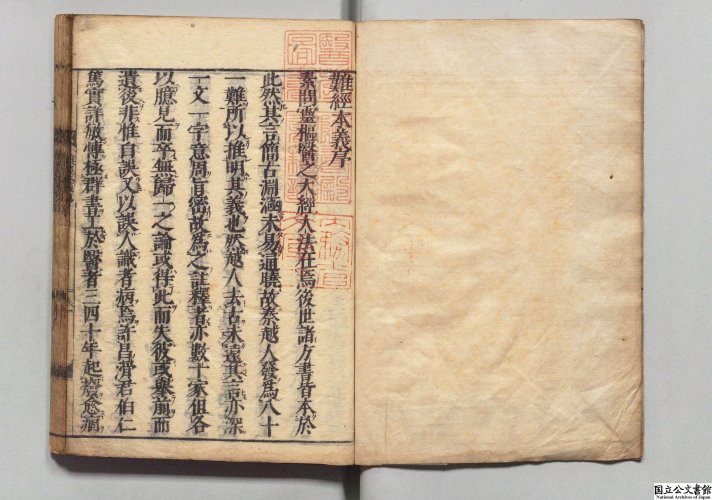 難經本義序
素問靈樞醫之大經大法在焉後世諸方書皆本於
此然其言簡古淵涵未易通曉故秦越人發爲八十
一難所以推明其義也然越人去古未遠其言亦深
一文一字意周旨密故爲之註釋者亦數十家但各
以臆見而卒無歸一之論或得此而失彼或舉前而
遺後非惟自誤又以誤人識者病焉許昌滑君伯仁
篤實詳敏博極群書工於醫者三四十年起廢愈痼
国立公文書館
National Archives of Japan